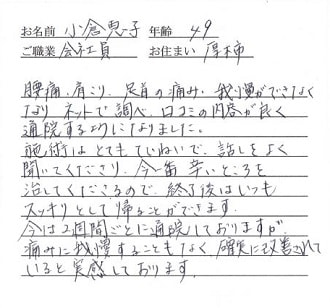 お名前 小倉恵子 年齢 49
ご職業 会社員 お住まい 厚木市
腰痛、肩こり、足首の痛み、我慢ができなく
なり ネットで調べ、口コミの内容が良く
通院するようになりました。
施術はとてもていねいで、話しをよく
聞いてくださり、今一番辛いところを
治してくださるので、終了後はいつも
スッキリとして帰ることができます。
今は2週間ごとに通院しておりますが
痛みに我慢することもなく、確実に改善されて
いると実感しております。